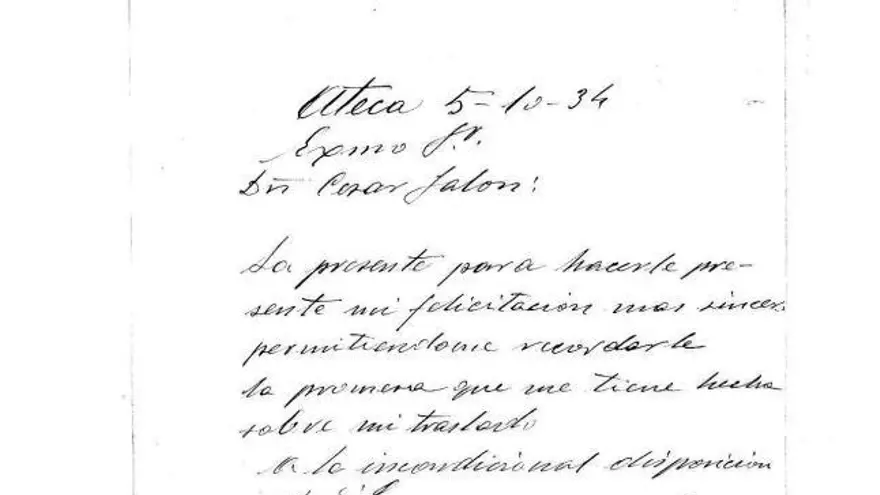 Ateca 5-10-34
Exmo Sr.
Dn Cesar Jalon:
La presente para hacerle pre-
sente mi felicitacion mas sincer
permitiendome recordarle
la promesa que me tiene hecha
sobre mi traslado
A la incondicional disposicion